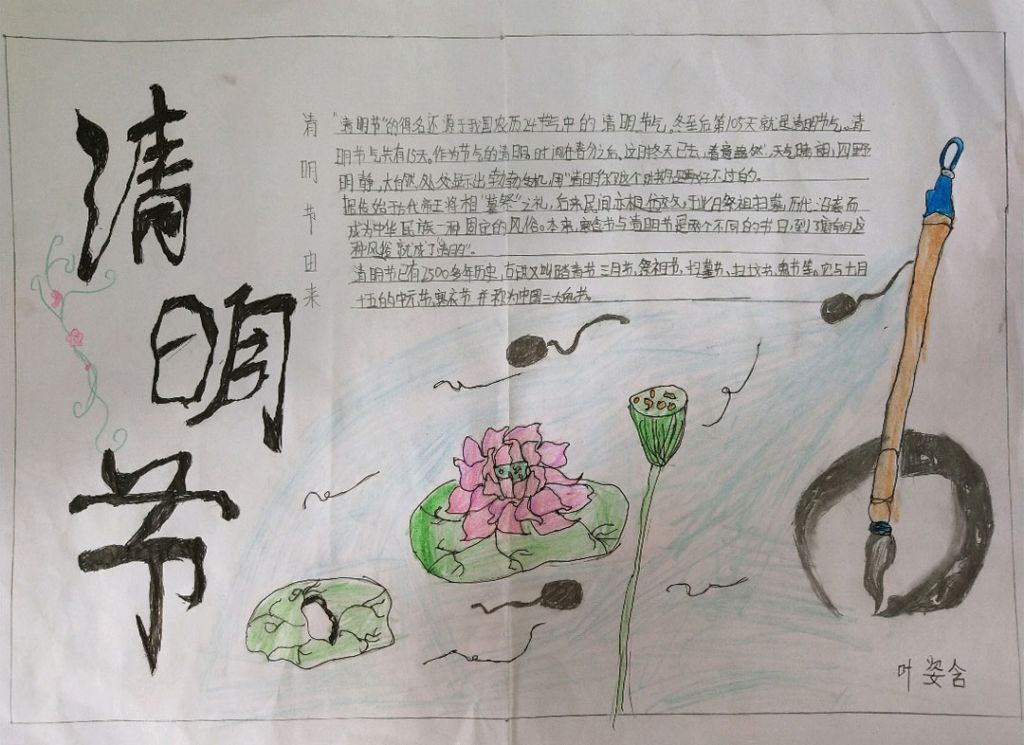 清
明
节
清明节由来
"清明节"的得名还源于我国农历24节气中的清明节气。冬至后第105天就是清明节气。清
明节气共有15天。作为节气的清明,时间在春分之后。这时冬天已去,春意盎然,天气晴朗,四野
明静,大自然处处显示出勃勃生机。用"清明"
据传始于古代帝王将相"墓祭"之礼,后来民间亦相仿效,于此日祭祖扫墓,历代沿袭而
成为中华民族一种固定的风俗。本来,寒食节与清明节是两个不同的节日,到了
种风俗就成了"清明"。
清明节已有2500多年历史,又叫踏青节、三月节、祭祖节、扫墓节、鬼节等。它与七月
十五的中元节、寒衣节并称为中国三大鬼节。
叶姿含